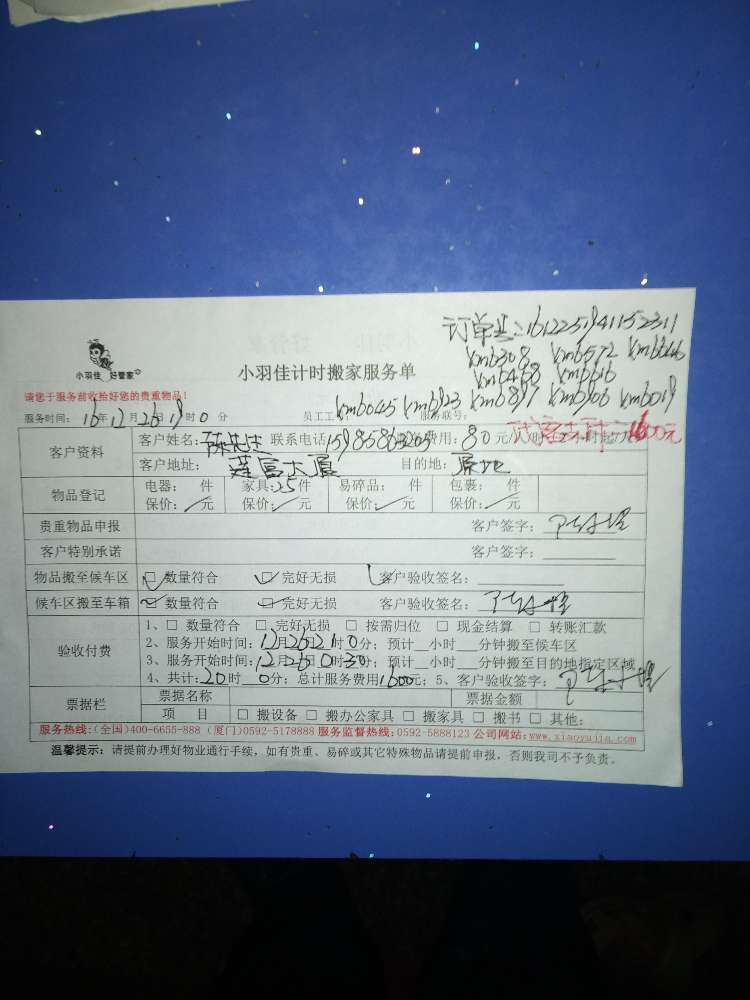 订单号:16122519411152311
kmb308 kmb572 kmb646
kmb468 kmb616
kmb045 kmb923 kmb897 kmb906 kmb019
小羽佳 好管家
小羽佳计时搬家服务单
请您于服务前收拾好您的贵重物品!
服务时间: 16年12月26日19时0分 员工工 服务联号:
客户资料 客户姓名: 陈先生 联系电话 15985863265 费用: 80元/ 时 1600元
客户地址: 莲富大厦 目的地: 原地
物品登记 电器: 件 家具: 25件 易碎品: 件 包裹: 件
保价: 元 保价: 元 保价: 元 保价: 元
贵重物品申报 客户签字:
客户特别承诺 客户签字:
物品搬至候车区 □ 数量符合 □ 完好无损 客户验收签名:
候车区搬至车箱 □ 数量符合 □ 完好无损 客户验收签名:
验收付费 1、□ 数量符合 □ 完好无损 □ 按需归位 □ 现金结算 □ 转账汇款
2、服务开始时间: 12月26日21时0分; 预计__小时___分钟搬至候车区
3、服务开始时间: 12月26日0时30分; 预计__小时___分钟搬至目的地指定区域
4、共计: 20时 0分; 总计服务费用1600元; 5、客户验收签字:
票据栏 票据名称 票据金额
项 目 □ 搬设备 □ 搬办公家具 □ 搬家具 □ 搬书 □ 其他:
服务热线:(全国)400-6655-888 (厦门)0592-5178888 服务监督热线:0592-5888123 公司网站:www.xiaoyujia.com
温馨提示: 请提前办理好物业通行手续, 如有贵重、易碎或其它特殊物品请提前申报, 否则我司不予负责。